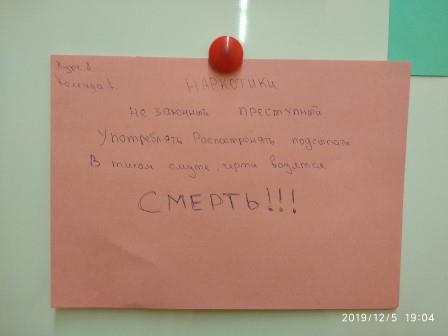 Коленда
НАРКОТИКИ
Не законный преступный
Употреблять Распостронять подсыпать
В тихом омуте, черти водятся
СМЕРТЬ!!!
2019/12/5 19:04